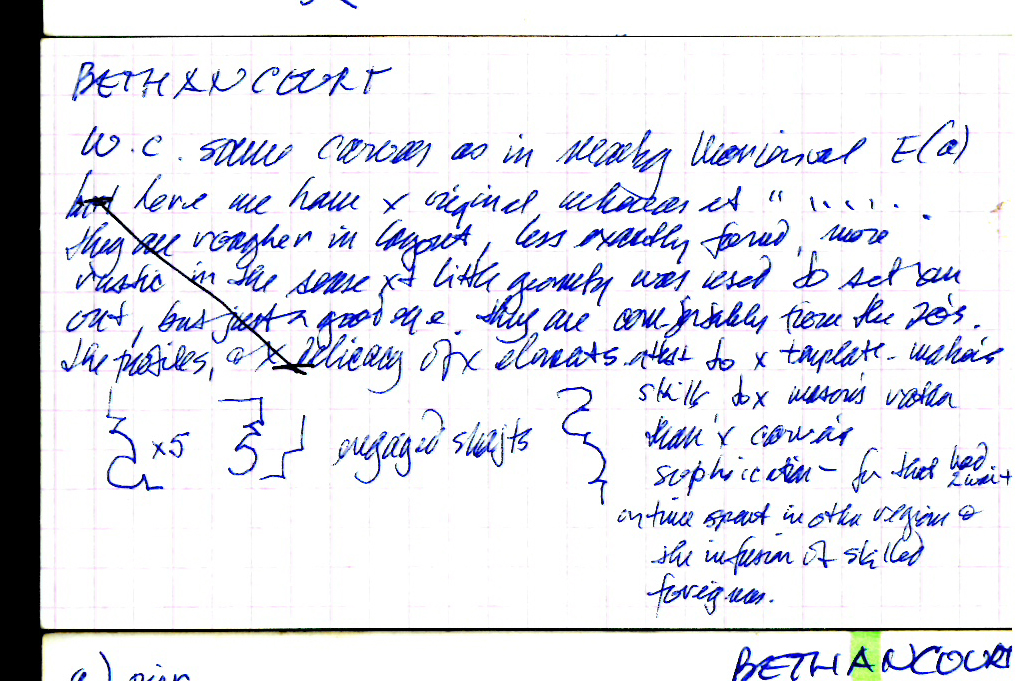 BETHANCOURT
W.C. same carver as in nearby Morienval E(a)
but here we have x original at " ....
they are rougher in layout, less exactly formed, more
rustic in the sense xt little geometry was used to set
out, but just a good eye. they are from the 20s.
the profiles, x delicacy of x elements attest to x template-maker's
skill to x mason's rather
than x carver's
x5 engaged shafts
sophistication - for that had 2 wait
on time spent in other regions &
the infusion of skilled
foreigners.
a)
BETHANCOURT